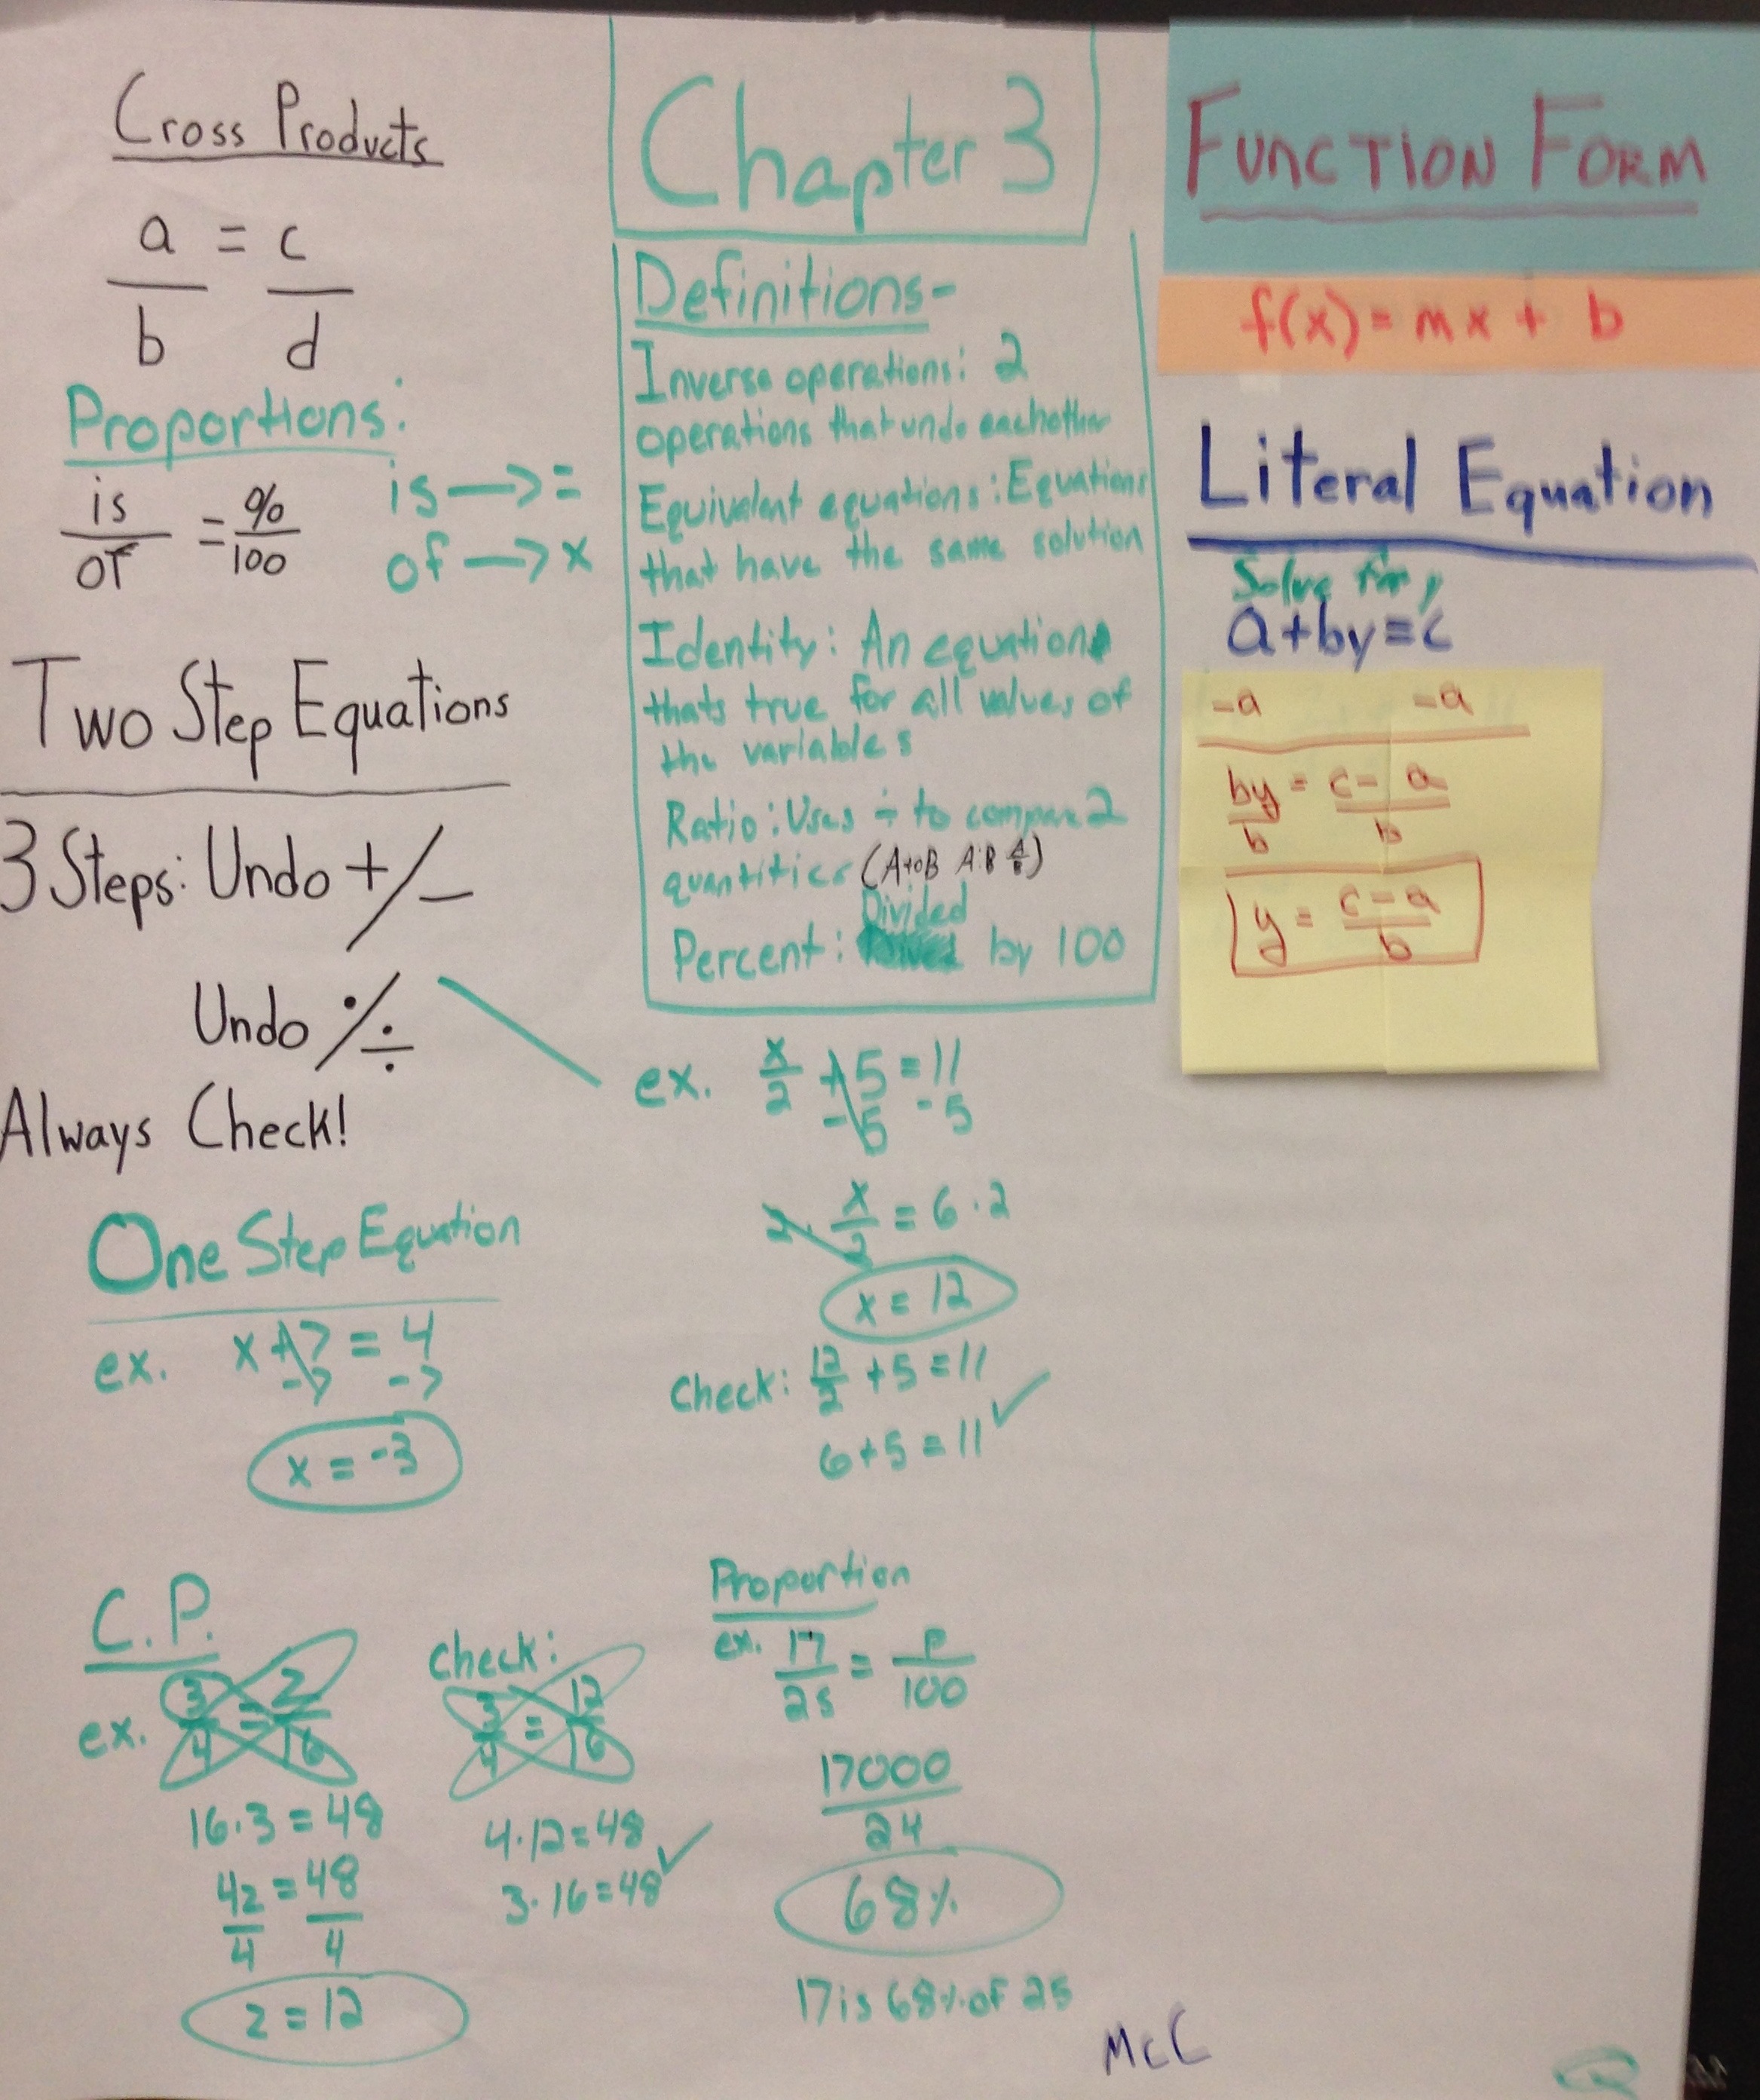 Cross Products
a = c
b d
Proportions:
is = %
of 100
is → =
of → x
Two Step Equations
3 Steps: Undo +/-
Undo ·/÷
Always Check!
One Step Equation
ex. x+7 = 4
-7 -7
x = -3
C.P.
ex. 3 = z
4 16
16·3=48
4z = 48
4 4
z = 12
Check:
3 = 12
4 16
4·12=48
3·16=48 ✓
Chapter 3
Definitions-
Inverse operations: 2
operations that undo eachother
Equivalent equations: Equations
that have the same solution
Identity: An equation
thats true for all values of
the variables
Ratio: Uses ÷ to compare 2
quantities (A to B A:B A/B)
Divided
Percent: by 100
ex. x/2 +5 = 11
-5 -5
2 · x/2 = 6·2
x = 12
Check: 12/2 +5 = 11
6+5 = 11 ✓
Proportion
ex. 17 = P
25 100
17000
24
68%
17 is 68% of 25
McC
Function Form
f(x) = mx + b
Literal Equation
Solve for y
a+by=c
-a -a
by = c - a
b b
y = c - a
b